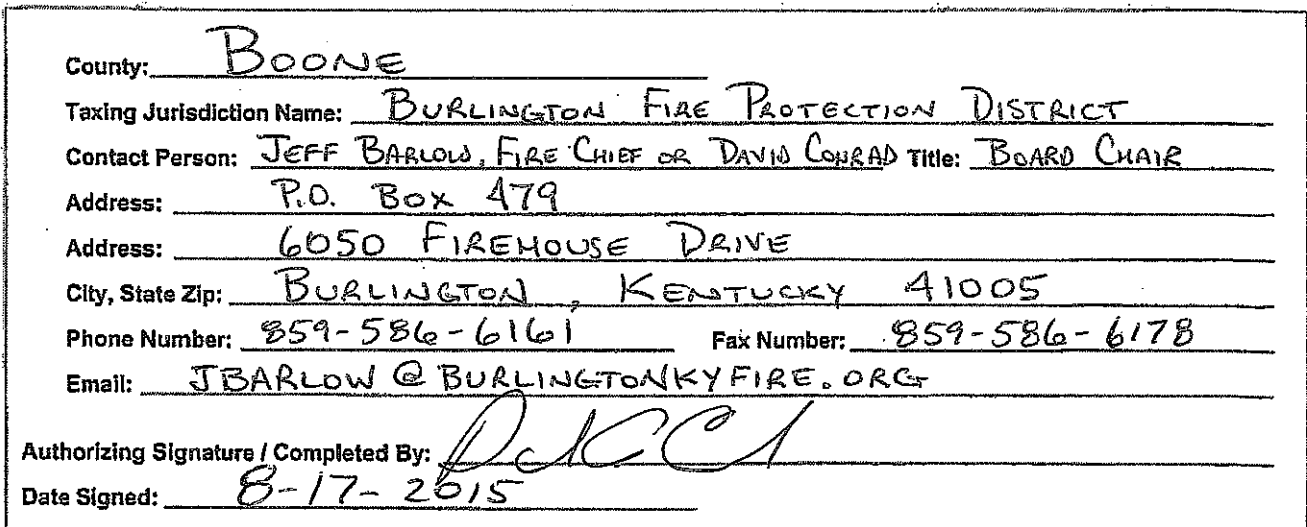 County: BOONE
Taxing Jurisdiction Name: BURLINGTON FIRE PROTECTION DISTRICT
Contact Person: JEFF BARLOW, FIRE CHIEF OR DAVID CONRAD Title: BOARD CHAIR
Address: P.O. BOX 479
Address: 6050 FIREHOUSE DRIVE
City, State Zip: BURLINGTON, KENTUCKY 41005
Phone Number: 859-586-6161 Fax Number: 859-586-6178
Email: JBARLOW@BURLINGTONKYFIRE.ORG
Authorizing Signature / Completed By:
Date Signed: 8-17-2015